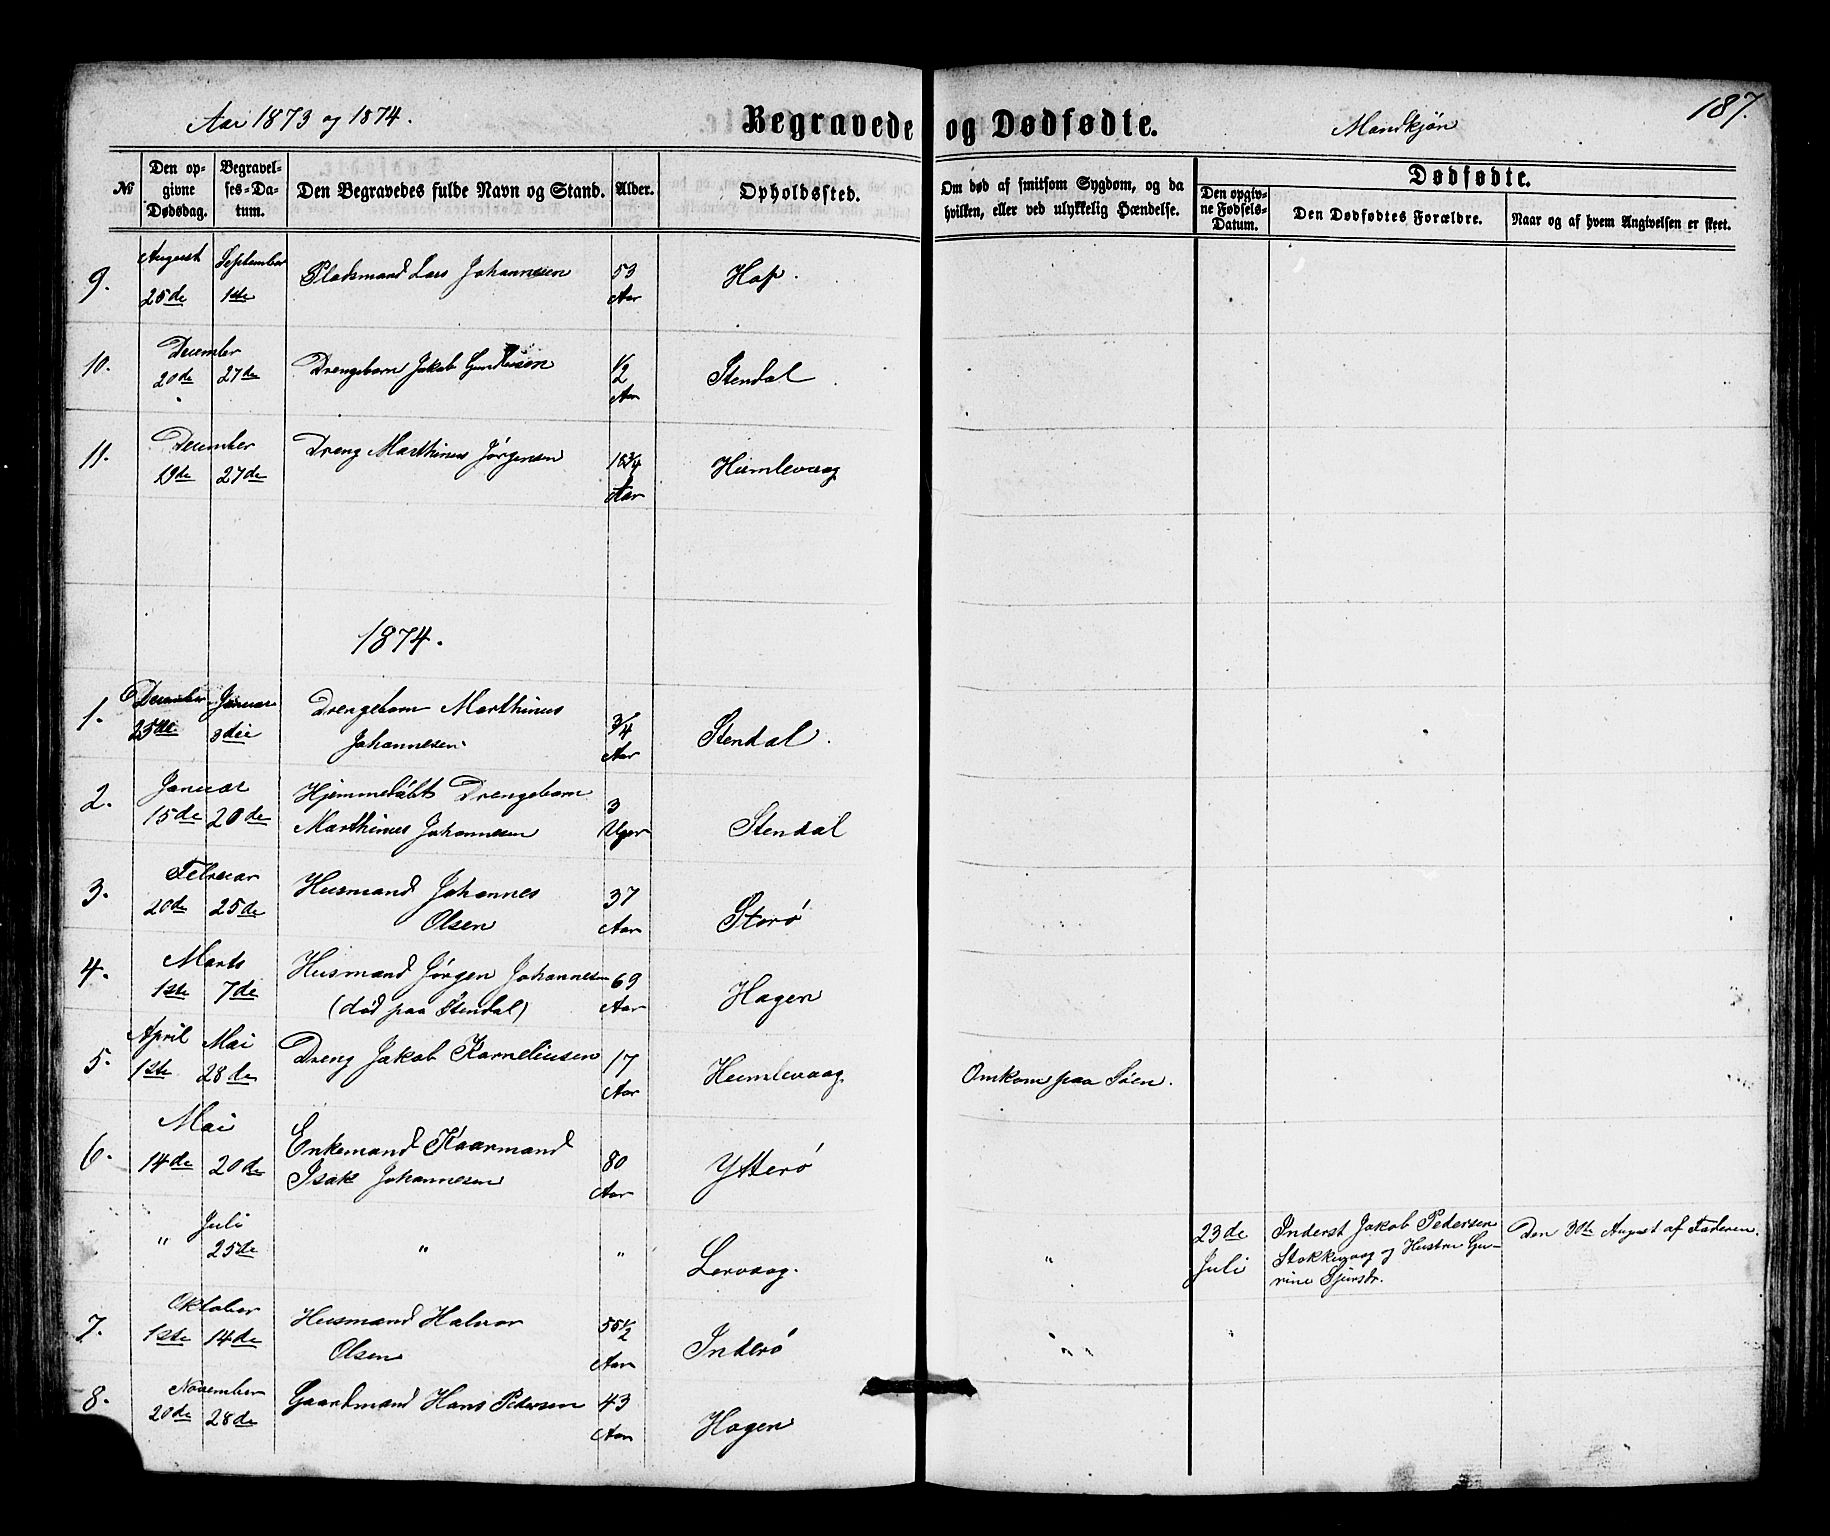 Aar 1873 og 1874. Begravede og Dødfødte. Mandkjøn 187.
№ Den opgivne Dødsdag. Begravelses-Datum. Den Begravedes fulde Navn og Stand. Alder. Opholdssted. Om død af smitsom Sygdom, og da hvilken, eller ved ulykkelig Hændelse. Dødfødte. Den opgivne Fødsels-Datum. Den Dødfødtes Forældre. Naar og af hvem Angivelsen er skeet.
August September
9. 25de 1ste Pladsmand Lars Johannesen 53 Aar Hop.
December
10. 20de 27de Drengebarn Jakob ½ Aar Stendal
December
11. 19de 27de Dreng Marthinus Jørgensen 18¾ Aar Humlevaag
1874.
December Januar
1. 25de 3die Drengebarn Marthinus
Johannesen ¾ Aar Stendal.
Januar
2. 15de 20de Hjemmedøbt Drengebarn
Marthinus Johannesen 3 Uger Stendal
Februar
3. 20de 25de Husmand Johannes
Olsen 37 Aar Storø
Marts
4. 1ste 7de Husmand Jørgen Johannesen 69 Aar Hagen
(død paa Stendal)
April Mai
5. 1ste 28de Dreng Jakob Korneliusen 17 Aar Humlevaag Omkom paa Søen.
Mai
6. 14de 20de Enkemand Kaarmand
Isak Johannesen 80 Aar Ytterø
Juli
" 25de " " Lervaag. " 23de Juli Inderst Jakob Pedersen
Stokkevaag og Hustru Gu-
rine Sjursdr. Den 30te August af Faderen.
Oktober
7. 1ste 14de Husmand Halvor
Olsen 55½ Aar Inderø
November
8. 20de 28de Gaardmand Hans Pedersen 43 Aar Hagen